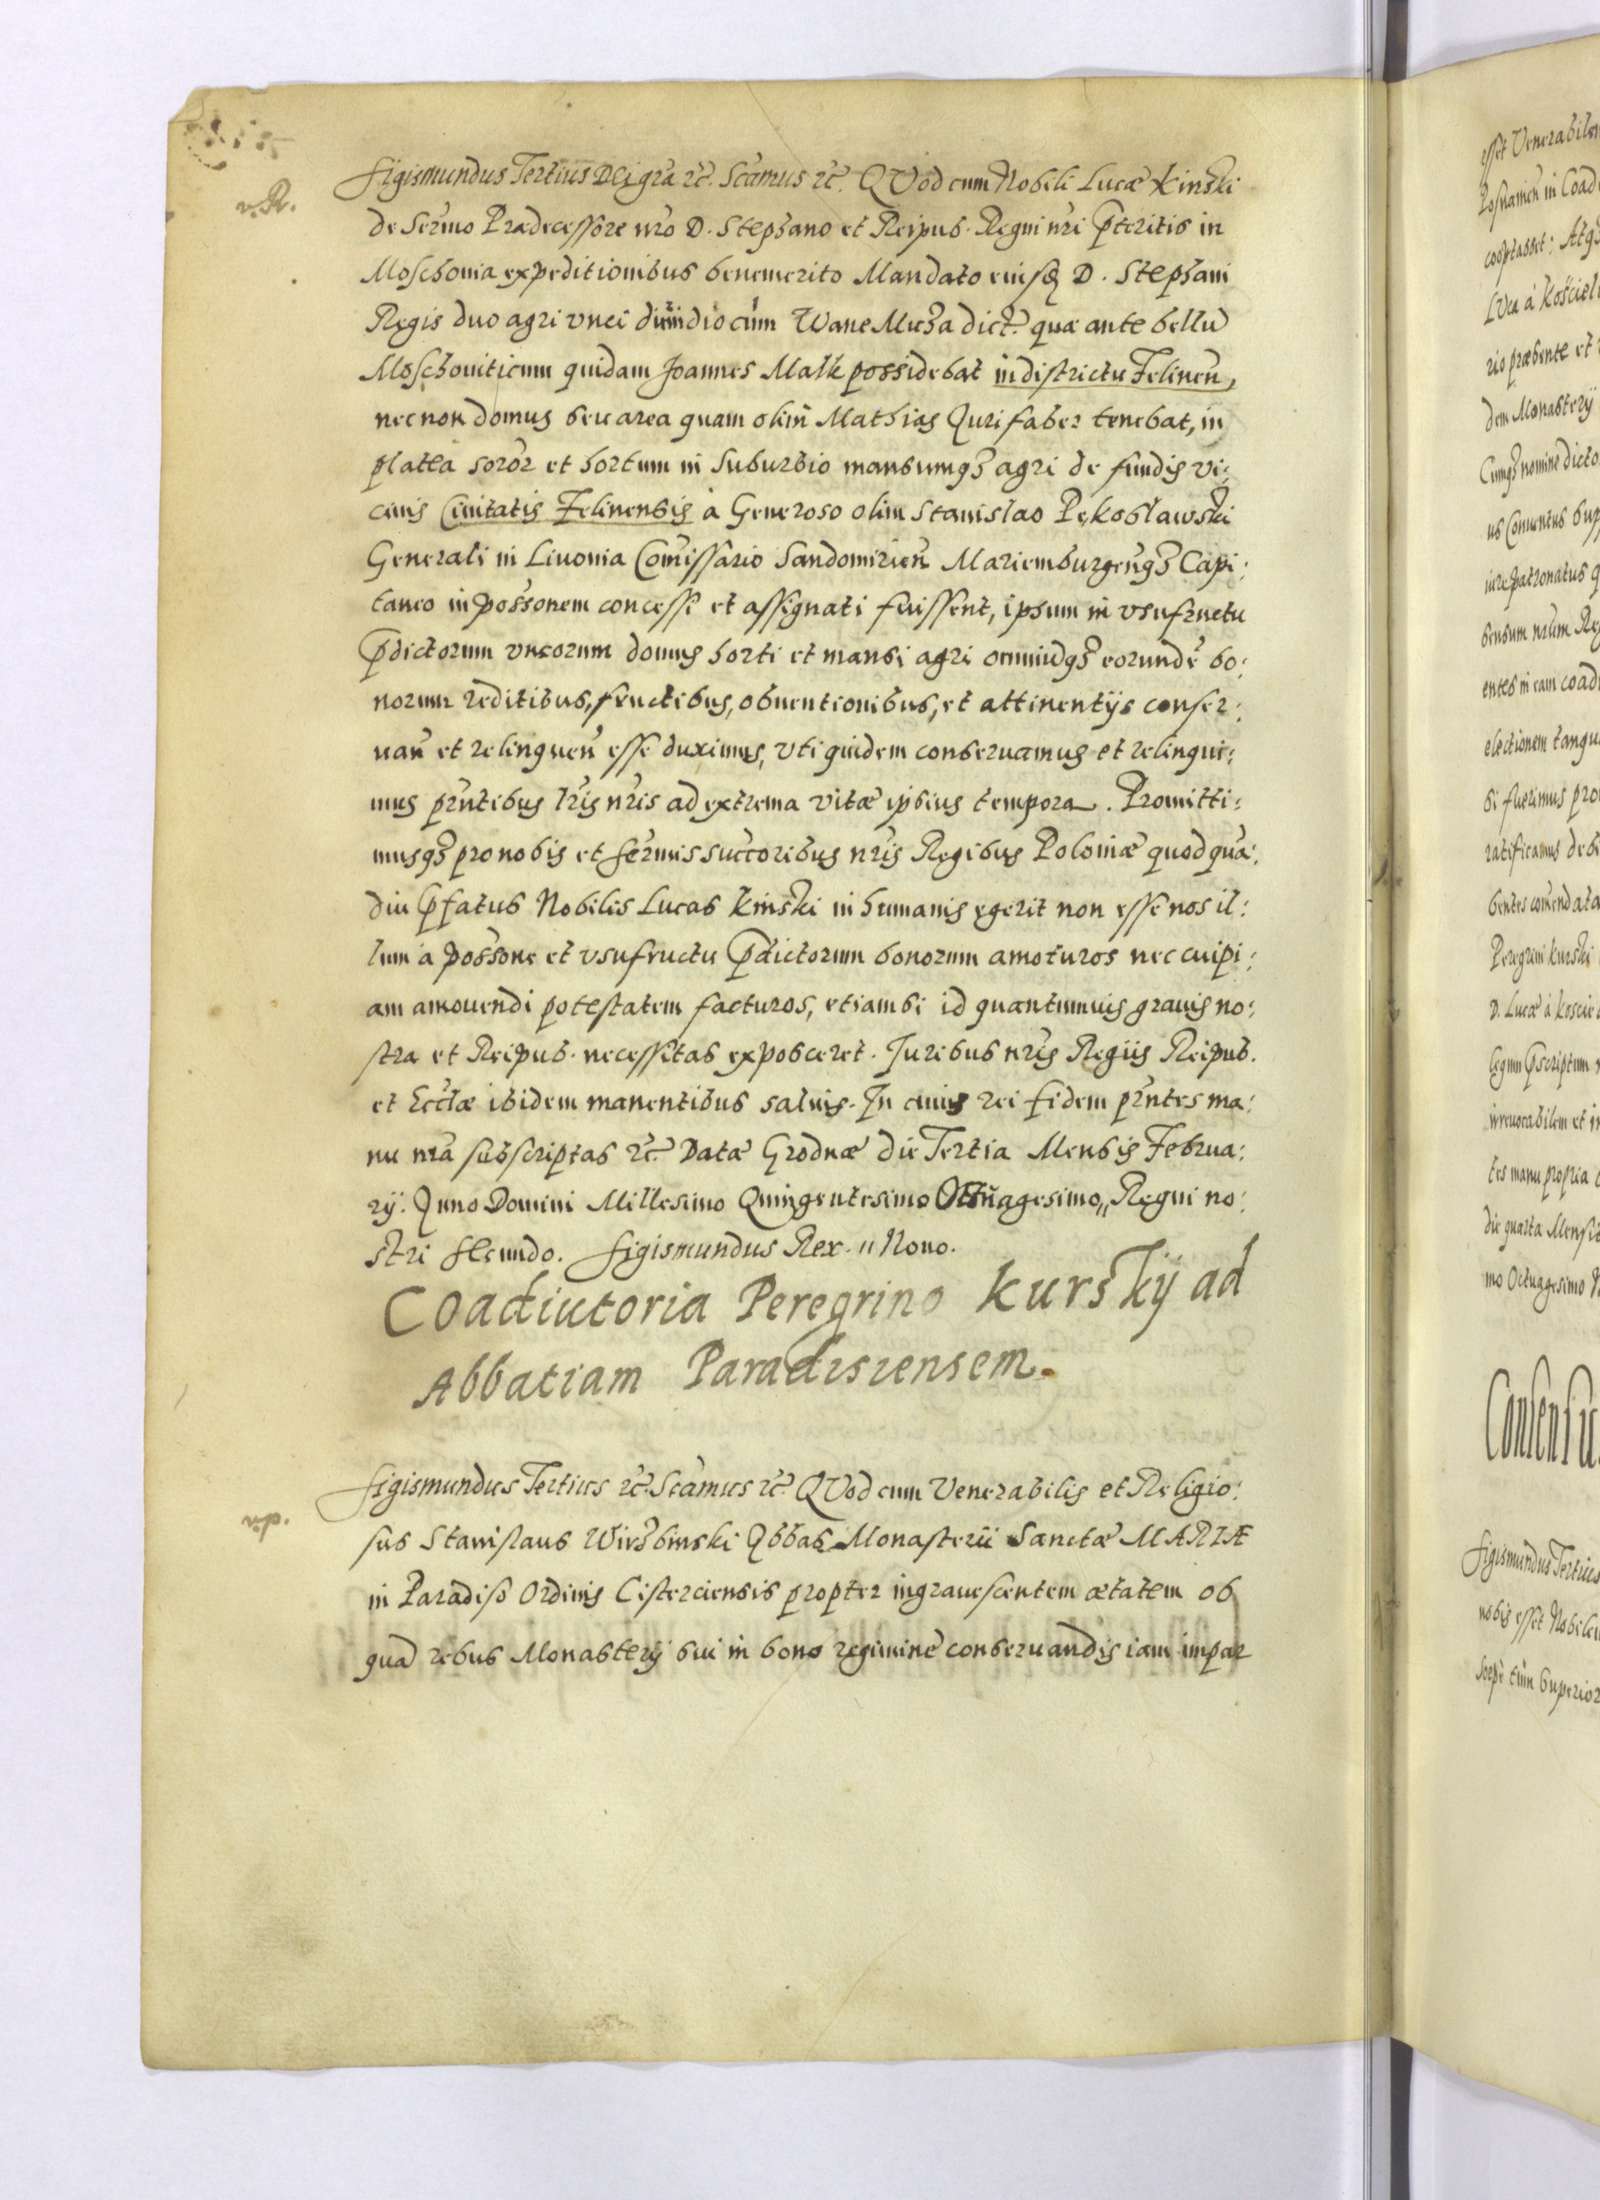 Sigismundus Tertius Dei gra rc. Scamus rc. QVod cum Nobili Lucæ Kinski
v. R.
de Sermo Prædecessore nro D. Stephano et Reipub. Regni nri pteritis in
Moschouia expeditionibus benemerito Mandato eiusq D. Stephani
Regis duo agri vnci dimidio cum Wane Micza dict. quæ ante bellu
Moschouiticum quidam Joannes Malk possidebat in districtu Felinen,
nec non domus seu area quam olim Mathias Aurifaber tenebat, in
platea soror et hortum in Suburbio mansumq3 agri de fundis vi:
cinis Ciuitatis Felinensis à Generoso olim Stanislao Pękoslawski
Generali in Liuonia Comissario Sandomirien Mariemburgenq3 Capi:
taneo in possonem concessi et assignati fuissent, ipsum in vsufructu
pdictorum vncorum domus horti et mansi agri omniuq3 eorunde bo:
norum reditibus, fructibus, obuentionibus, et attinentijs conser:
uan et relinquen esse duximus, vti quidem conseruamus et relinqui:
mus prntibus lris nris ad extrema vitæ ipsius tempora. Promitti:
musq3 pro nobis et sermis succoribus nris Regibus Poloniæ quod qua:
diu pfatus Nobilis Lucas Kinski in humanis egerit non esse nos il:
lum à possone et vsufructu pdictorum bonorum amoturos nec cuipi:
am amouendi potestatem facturos, etiamsi id quantumuis grauis no:
stra et Reipub. necessitas exposceret. Juribus nris Regiis Reipub.
et Eccliæ ibidem manentibus saluis. In cuius rei fidem prntes ma:
nu nra subscriptas rc. Datæ Grodnæ die Tertia Mensis Februa:
rij. Anno Domini Millesimo Quingentesimo Octuagesimo,, Regni no:
stri Secundo. Sigismundus Rex. ,, Nono.
Coadiutoria Peregrino Kurskij ad
Abbatiam Paradisiensem.
Sigismundus Tertius rc. Scamus rc. QVod cum Venerabilis et Religio:
v. p.
sus Stanislaus Wirzbinski Abbas Monasterii Sanctæ MARIÆ
in Paradiso Ordinis Cisterciensis propter ingrauescentem ætatem ob
qua rebus Monasterij sui in bono regimine conseruandis iam impar
esset Venerabilem
Posnanien in Coad
cooptasset: Atq3
Luca à Kosciel
rio præbente et
dem Monasterij
Cumq3 nomine dicto
us Conuentus sup
iure patronatus q
sensum nrum Reg
entes in eam coad
electionem tanqu
si fuerimus pro
ratificamus debi
bentes comendata
Peregrini Kurski
D. Lucæ à Koscie
legum pscriptum
irreuocabilem et in
tes manu propria
die quarta Mensis
mo Octuagesimo N
Consensus
Sigismundus Tertius
nobis esset Nobilem
sæpè tum superior